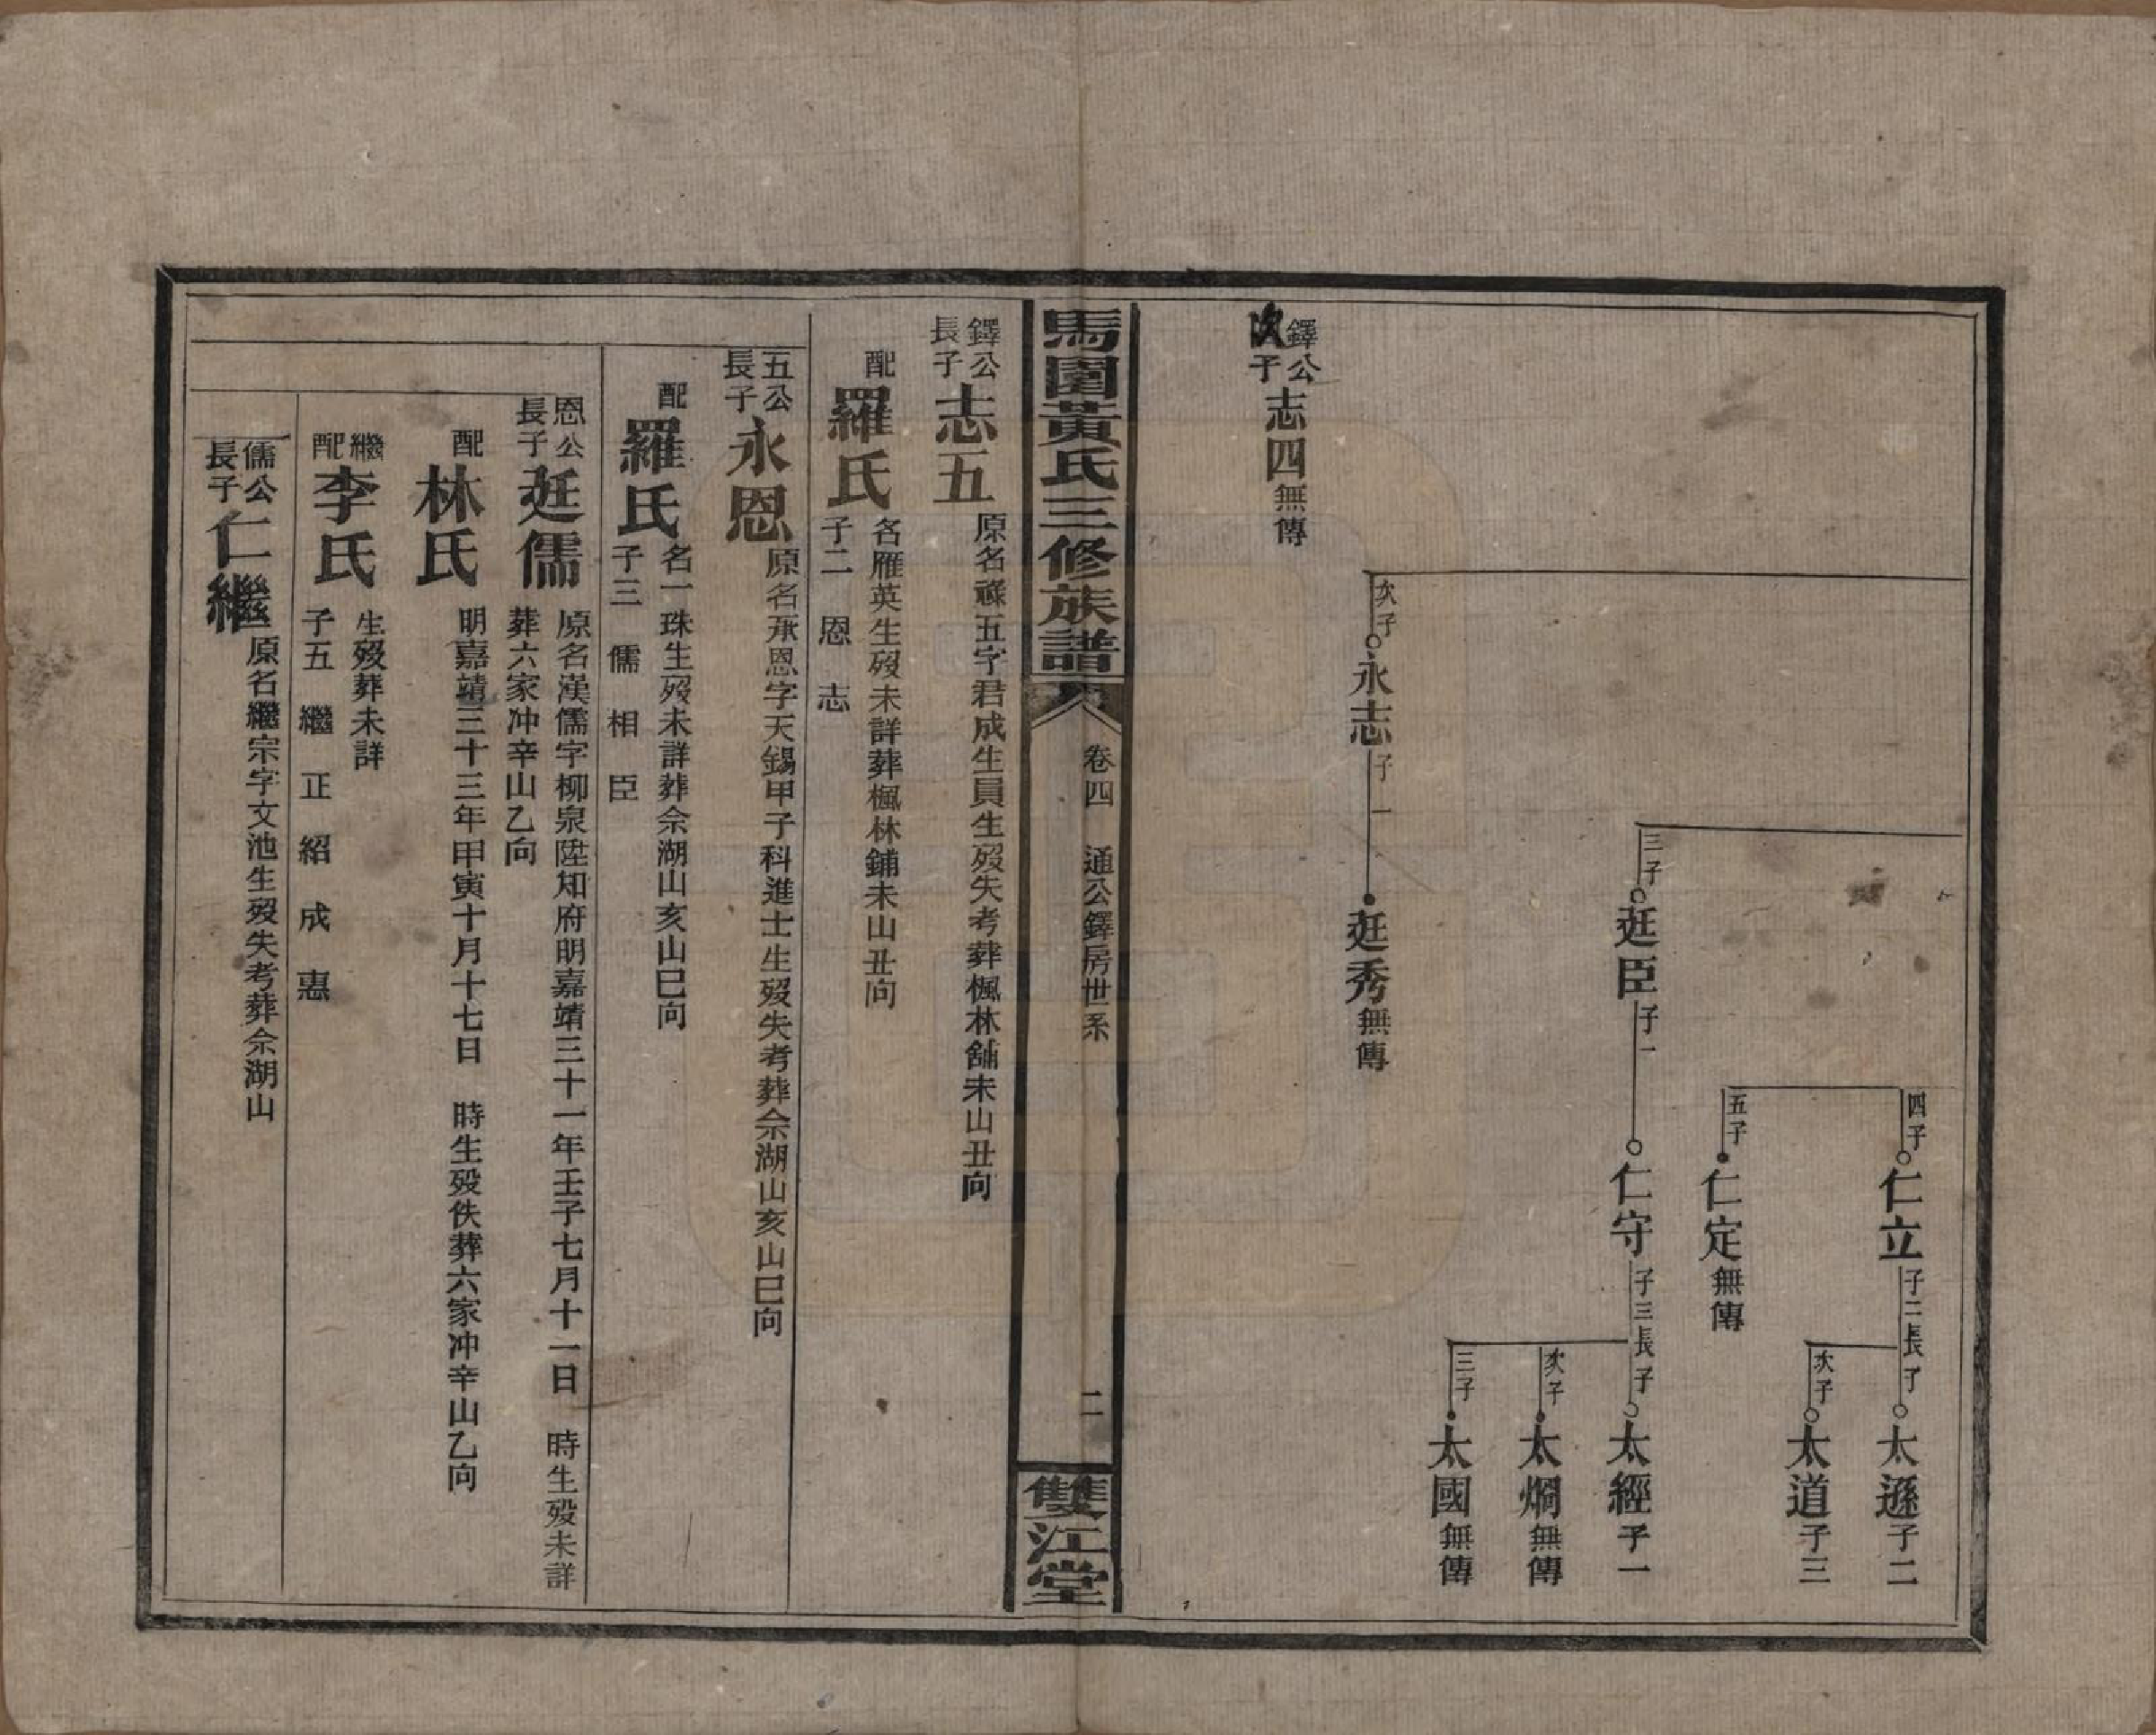 四子
仁立
子二長子
太遜
子二
次子
太道
子三
五子
仁定
無傳
三子
逛臣
子一
仁守
子三長子
太經
子一
次子
太燗
無傳
三子
太國
無傳
次子
永志
子一
逛秀
無傳
鐸公
次子
志四
無傳
馬園黃氏三修族譜
卷四
通公鐸房世系
二
雙江堂
鐸公
長子
志五
原名祿五字君成生員生歿失考葬楓林舖未山丑向
配
羅氏
名雁英生歿未詳葬楓林鋪未山丑向
子二 恩 志
五公
長子
永恩
原名承恩字天錫甲子科進士生歿失考葬佘湖山亥山巳向
配
羅氏
名一珠生歿未詳葬佘湖山亥山巳向
子三 儒 相 臣
恩公
長子
逛儒
原名漢儒字柳泉陞知府明嘉靖三十一年壬子七月十一日 時生歿未詳
葬六家冲辛山乙向
配
林氏
明嘉靖三十三年甲寅十月十七日 時生歿佚葬六家冲辛山乙向
繼
配
李氏
生歿葬未詳
子五 繼 正 紹 成 惠
儒公
長子
仁繼
原名繼宗字文池生歿失考葬佘湖山